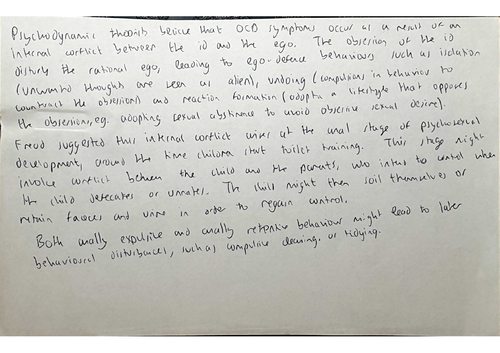 Psychodynamic theorists believe that OCD symptoms occur as a result of an
internal conflict between the id and the ego. The obsession of the id
disturb the rational ego, leading to ego-defence behaviours such as isolation
(unwanted thoughts are seen as alien), undoing (compulsions in behaviour to
counteract the obsession) and reaction formation (adopt a lifestyle that opposes
the obsessions, eg. adopting sexual abstinence to avoid obsessive sexual desire).
Freud suggested this internal conflict arises at the anal stage of psychosexual
development, around the time children start toilet training. This stage might
involve conflict between the child and the parents, who intend to control when
the child defecates or urinates. The child might then soil themselves or
retain faeces and urine in order to regain control.
Both anally expulsive and anally retentive behaviour might lead to later
behavioural disturbances, such as compulsive cleaning or tidying.